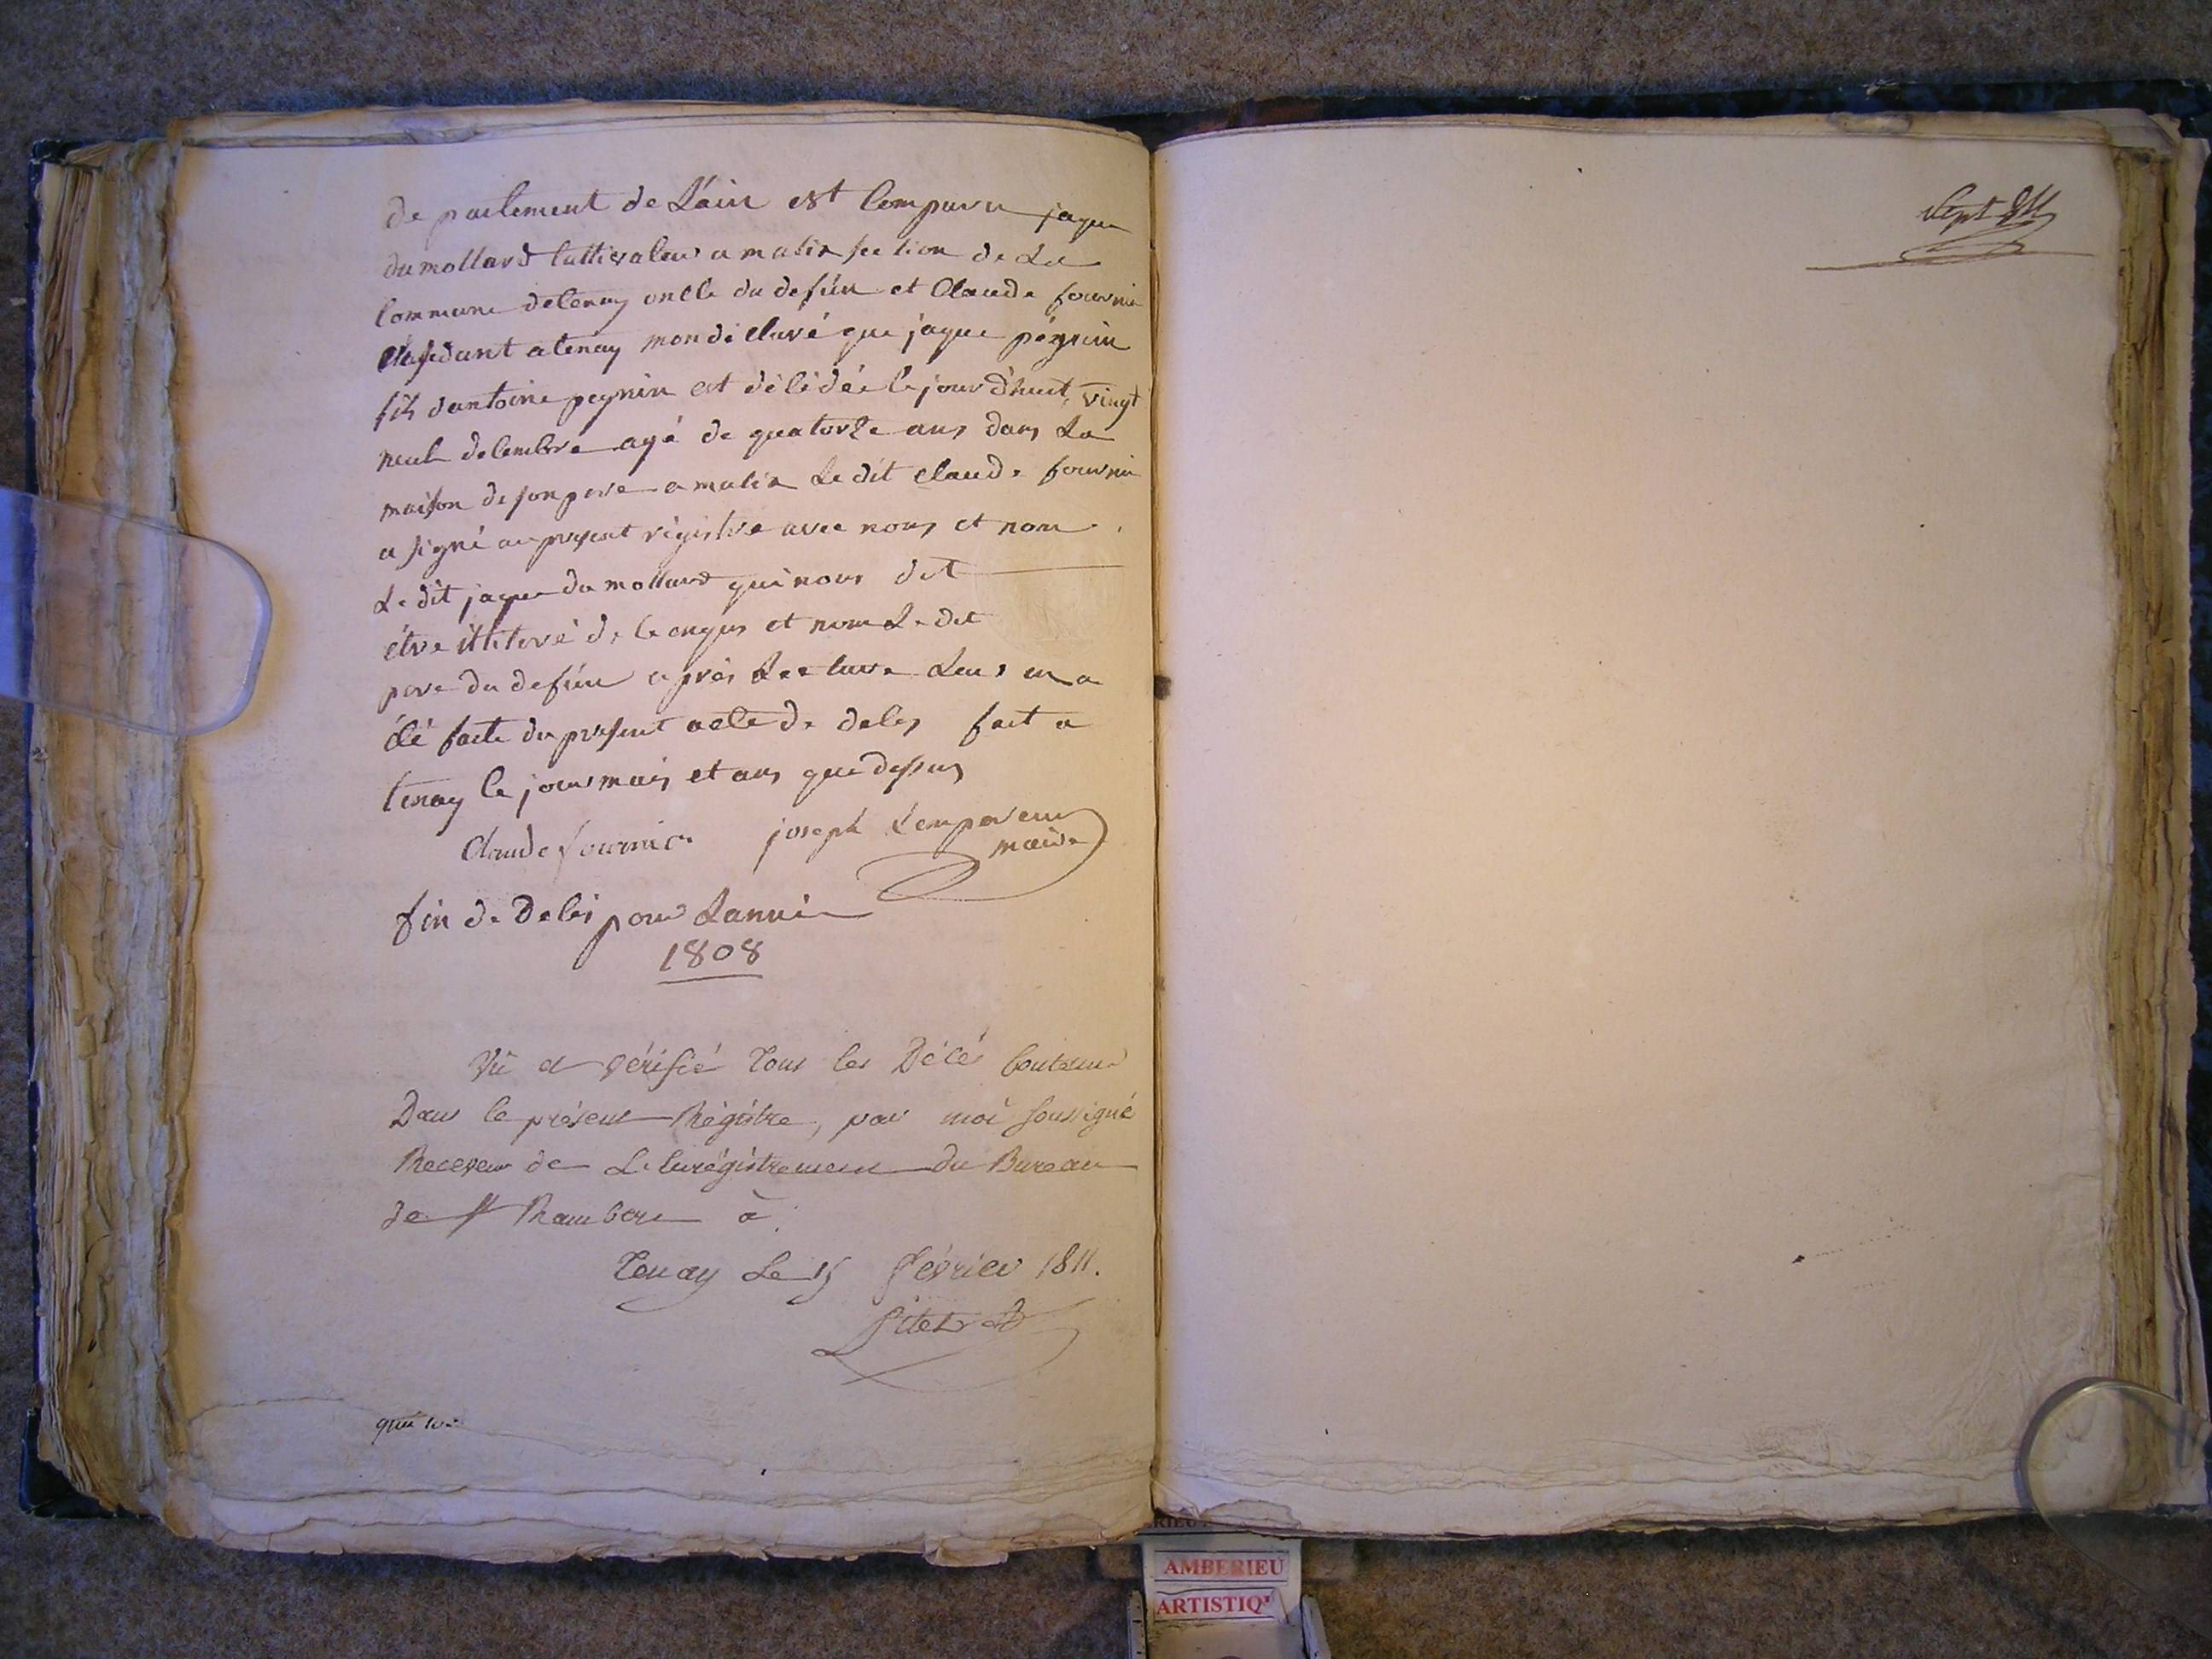 de partement de Láin est Comparu jaque
dumollard Cultivateur a malix section de La
Commune detenay oncle du defün et Claude fournie
Résidant a tenay mon déclaré que jaque péynin
fils dantoine peynin est décédée Ce jourd'huit vingt
neuf decembre agé de quatorze ans dans La
maison de son pere a malix Le dit Claude fournie
a signé au present régistre avec nous et nom
Le dit jaque du mollard qui nous dit
étre illiteré de Ce enquis et nom Le dit
pere du defün après Lecture Leur en a
été faite du present acte de deces fait a
tenay Ce jour mois et ans que dessus
Claude fournier joseph Lempereur
maire
fin de Decés pour Lannée
1808
Vû et Vérifié Tous les Décés Contenu
Dans le présent Régistre, par moi Soussigné
Receveur de L'Enrégistrement du Bureau
de St Rambert à
Tenay Le 15 février 1811.
AMBERIEU
ARTISTIQ